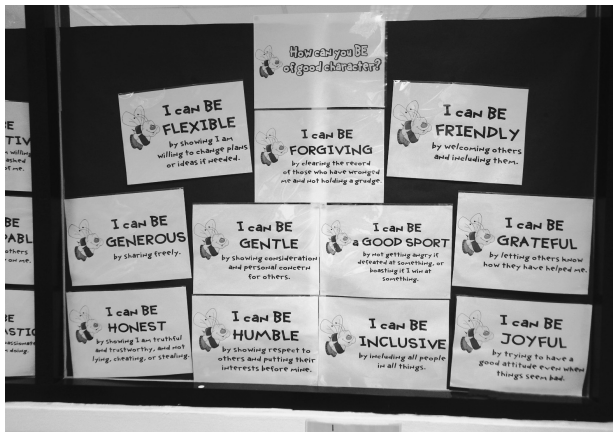 How can you BE
of good character?
I can BE
FLEXIBLE
by showing I am
willing to change plans
or ideas if needed.
I can BE
FORGIVING
by clearing the record
of those who have wronged
me and not holding a grudge.
I can BE
FRIENDLY
by welcoming others
and including them.
I can BE
GENEROUS
by sharing freely.
I can BE
GENTLE
by showing consideration
and personal concern
for others.
I can BE
a GOOD SPORT
by not getting angry if
defeated at something, or
boasting if I win at
something.
I can BE
GRATEFUL
by letting others know
how they have helped me.
I can BE
HONEST
by showing I am truthful
and trustworthy, and not
lying, cheating, or stealing.
I can BE
HUMBLE
by showing respect to
others and putting their
interests before mine.
I can BE
INCLUSIVE
by including all people
in all things.
I can BE
JOYFUL
by trying to have a
good attitude even when
things seem bad.
of me.
on me.
doing.